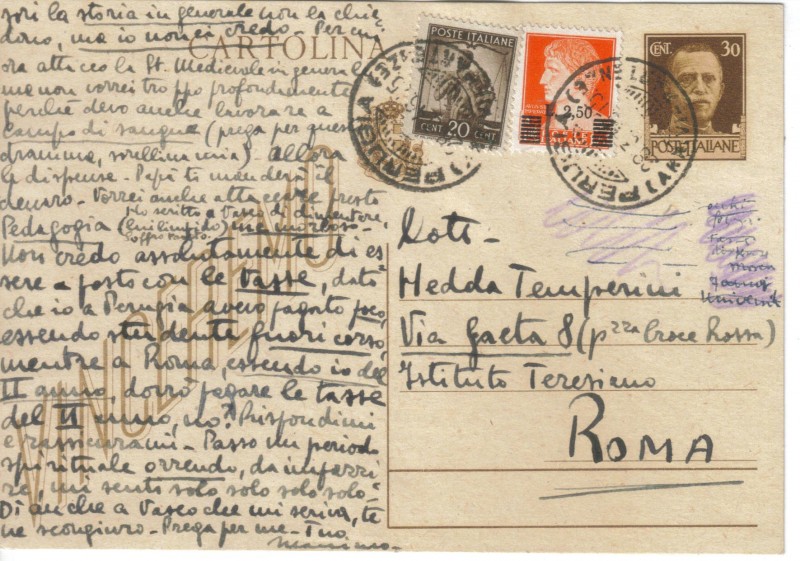 sori la storia in generale non la chie
dono, ma io non ci credo - Per
ora attacco la St. Medievale in general
ma non vorrei troppo profondamente
perchè devo anche lavorare a
Campo di sangue (prega per questo
dramma, sorellina mia) - Allora
le dispense - Papà ti manderà il
denaro - Vorrei anche attaccare presto
Pedagogia
Ho scritto a Vasco di
Non credo assolutamente di es
sere a posto con le tasse, dato
che io a Perugia avevo pagato poco,
essendo studente fuori corso,
mentre a Roma, essendo io del
II anno, dovrò pagare le tasse
del II anno, no? Rispondimi
e rassicurami - Passo un periodo
spirituale orrendo, da impazzi
re, mi sento solo solo solo solo -
Di' anche a Vasco che mi scriva, te
ne scongiuro - Prega per me - Tuo
CARTOLINA
VINCEREMO
POSTE ITALIANE
CENT 20 CENT
2,50
CENT. 30
POSTE ITALIANE
PERUGIA
PERUGIA
Dott.
Hedda Temperini
Via Gaeta 8 (p.zza Croce Rossa)
Istituto Teresiano
ROMA